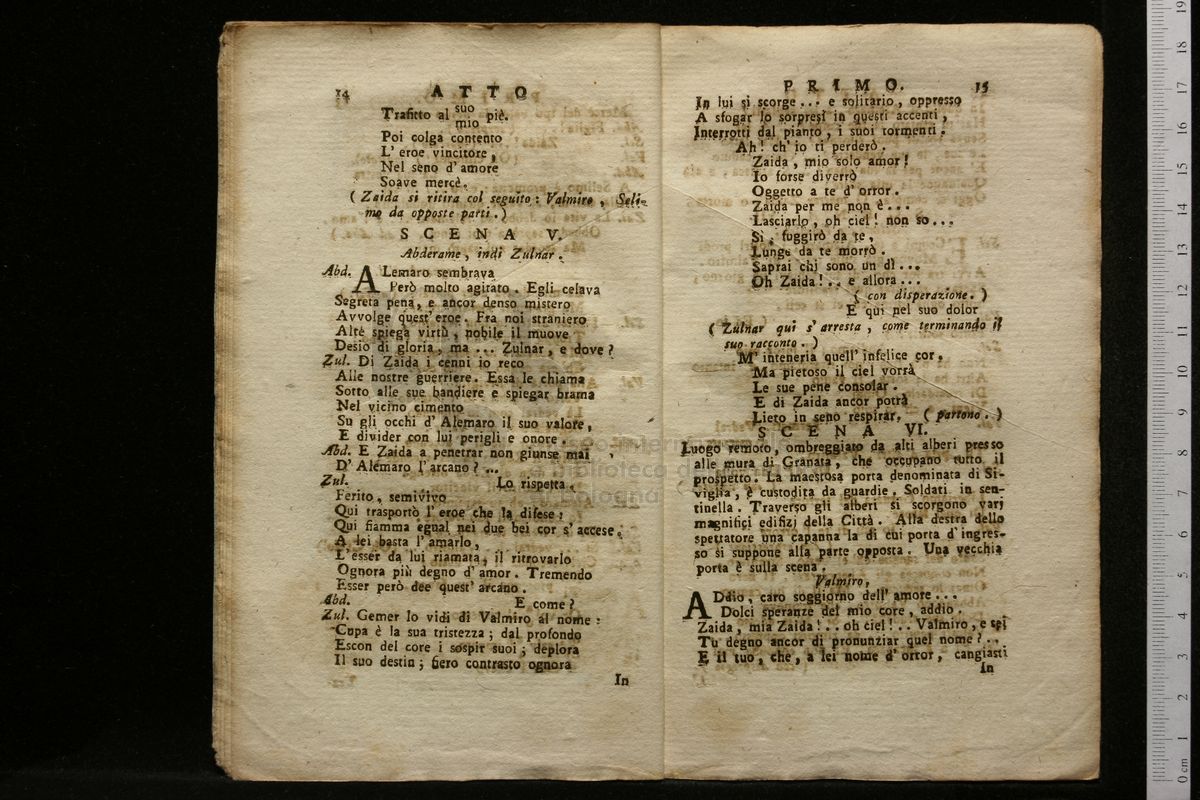 14 ATTO
Trafitto al suo
mio piè.
Poi colga contento
L' eroe vincitore,
Nel seno d' amore
Soave mercè.
( Zaida si ritira col seguito : Valmiro, Seli-
mo da opposte parti. )
SCENA V.
Abderame, indi Zulnar.
Abd. ALemaro sembrava
Però molto agitato. Egli celava
Segreta pena, e ancor denso mistero
Avvolge quest' eroe. Fra noi straniero
Alte spiega virtù, nobile il muove
Desio di gloria, ma ... Zulnar, e dove?
Zul. Di Zaida i cenni io reco
Alle nostre guerriere. Essa le chiama
Sotto alle sue bandiere e spiegar brama
Nel vicino cimento
Su gli occhi d' Alemaro il suo valore,
E divider con lui perigli e onore.
Abd. E Zaida a penetrar non giunse mai
D' Alemaro l' arcano? ...
Zul. Lo rispetta.
Ferito, semivivo
Qui trasportò l' eroe che la difese:
Qui fiamma egual nei due bei cor s' accese.
A lei basta l' amarlo,
L' esser da lui riamata, il ritrovarlo
Ognora più degno d' amor. Tremendo
Esser però dee quest' arcano.
Abd. E come?
Zul. Gemer lo vidi di Valmiro al nome:
Cupa è la sua tristezza; dal profondo
Escon del core i sospir suoi; deplora
Il suo destin; fiero contrasto ognora
In
PRIMO. 15
In lui si scorge ... e solitario, oppresso
A sfogar lo sorpresi in questi accenti,
Interrotti dal pianto, i suoi tormenti.
Ah! ch' io ti perderò.
Zaida, mio solo amor!
Io forse diverrò
Oggetto a te d' orror.
Zaida per me non è ...
Lasciarlo, oh ciel! non so ...
Si, fuggirò da te,
Lunge da te morrò.
Saprai chi sono un dì ...
Oh Zaida! .. e allora ...
( con disperazione. )
E qui nel suo dolor
( Zulnar qui s' arresta, come terminando il
suo racconto. )
M' inteneria quell' infelice cor.
Ma pietoso il ciel vorrà
Le sue pene consolar.
E di Zaida ancor potrà
Lieto in seno respirar. ( partono. )
SCENA VI.
Luogo remoto, ombreggiato da alti alberi presso
alle mura di Granata, che occupano tutto il
prospetto. La maestosa porta denominata di Si-
viglia, è custodita da guardie. Soldati in sen-
tinella. Traverso gli alberi si scorgono varj
magnifici edifizj della Città. Alla destra dello
spettatore una capanna la di cui porta d' ingres-
so si suppone alla parte opposta. Una vecchia
porta è sulla scena.
Valmiro.
ADdio, caro soggiorno dell' amore ...
Dolci speranze del mio core, addio.
Zaida, mia Zaida! .. oh ciel! .. Valmiro, e sei
Tu degno ancor di pronunziar quel nome? ..
E il tuo, che, a lei nome d' orror, cangiasti
In